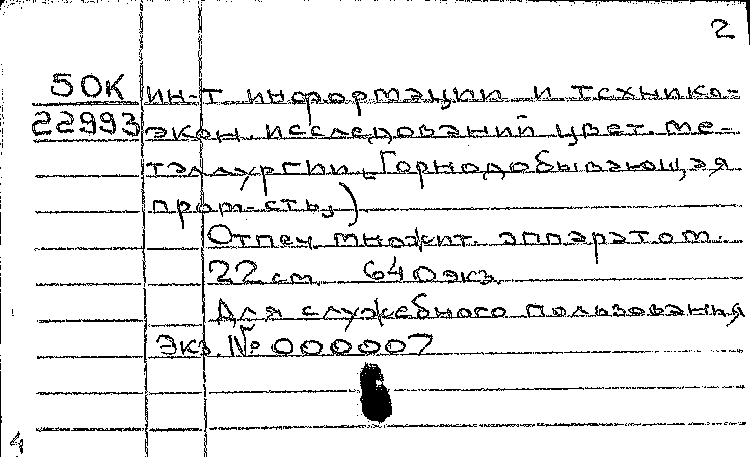 2
50К ин-т информации и технико-
22993 экон. исследований цвет. ме-
таллургии „Горнодобывающая
пром-сть„)
Отпеч. множит. аппаратом.
22 см. 640 экз.
Для служебного пользования
Экз. № 000007
4